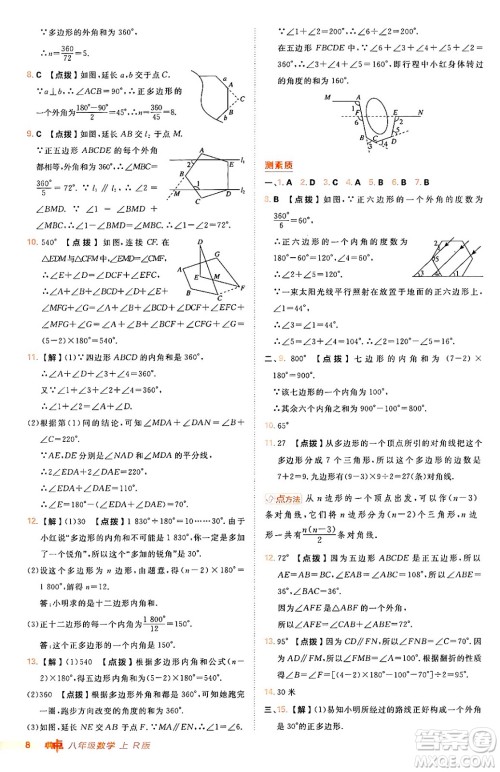 ∵多边形的外角和为 360°,
∴n=360/72=5.
8. C 【点拨】如图,延长 a、b 交于点 C.
∵a⊥b,∴∠ACB=90°.∴正多边形的
一个外角为180°-90°/2=45°,∴n=360/45
=8.
9. C 【点拨】如图,延长 AB 交 l₂ 于点 M.
∵正五边形 ABCDE 的每个外角
都相等,∴∠MBC=
360°/5=72°.∵l₁∥l₂,∴∠2=
∠BMD.
∵∠1=∠BMD+∠MBC,∴∠BMD=∠1-∠MBC.
∴∠1-∠2=∠MBC=72°.
10. 540° 【点拨】如图,连接 CF. 在
△EDM与△CFM中,∠EMD=∠CMF,
∴∠E+∠D=∠MCF+∠MFC.
∴∠A+∠B+∠BCE+∠D+∠E+
∠MFG+∠G=∠A+∠B+∠BCE+∠MCF+∠MFC+
∠MFG+∠G=∠A+∠B+∠BCF+∠CFG+∠G=
(5-2)×180°=540°.
11. 【解】(1)∵四边形 ABCD 的内角和是 360°,
∴∠A+∠B+∠3+∠4=360°.
又∵∠1+∠3=180°,∠2+∠4=180°,
∴∠A+∠B=∠1+∠2.
(2)根据第(1)问的结论,可知∠MDA+∠DAN=∠B+
∠C=220°.
∵AE,DE分别是∠NAD,∠MDA的平分线,
∴∠ADE+∠DAE=1/2(∠MDA+∠DAN)=110°.
∴∠E=180°-(∠ADE+∠DAE)=70°.
12. 【解】(1)30 【点拨】1 830°÷180°=10……30°,所以
小红说“多边形的内角和不可能是 1 830°,你一定是多加
了一个锐角”,则“多加的锐角”是 30°.
(2)设这个多边形为 n 边形,由题意,得(n-2)×180°=
1 800°,解得 n=12.
答:小明求的是十二边形的内角和.
(3)正十二边形的每一个内角为1 800°/12=150°.
答:这个正多边形的一个内角是 150°.
13. 【解】(1)540 【点拨】根据多边形内角和公式(n-2)×
180°可得,五边形 ABCDE 的内角和为(5-2)×180°
=540°.
(2)360 【点拨】根据多边形外角和定理,可知小红沿公园
内边的四边形步道跑步,则她每跑完一圈,跑步方向改变
的角度的和是 360°.
(3)如图,延长 NE 交 AB 的延长线于点 F.∵AM∥EN,
8 点 八年级数学 上 R版
∴∠MAB+∠F=180°.
在五边形 FBCDE 中,∠F+∠FBC+∠C+∠D+∠DEF=
540°,∴行程中小红身体转过
的角度的和=
测素质
一、1. A 2. D 3. D 4. A 5. B 6. D 7. A
8. B 【点拨】∵正六边形的一个外角的度数为
360°/6=60°,
∴正六边形的一个内角的度数
为180°-60°=120°,
即∠2+∠3=120°.
∵一束太阳光线平行照射在放置于地面的正六边形上,
∠1=44°,∴∠4=∠1=44°.
∴∠3=∠4+60°=104°.
∴∠2=120°-∠3=16°.
二、9. 800° 【点拨】七边形的内角和为(7-2)×180°
=900°.
∵该七边形的一个内角为 100°,
∴其余六个内角之和为 900°-100°=800°.
10. 65°
11. 27 【点拨】从多边形的一个顶点所引的对角线把这个
多边形分成 7 个三角形,所以这个多边形的边数是
7+2=9.九边形有9×(9-3)/2=27(条)对角线.
点方法 从 n 边形的一个顶点出发,可以引(n-3)
条对角线,n 边形共有n(n-3)/2条对角线.
12. 72° 【点拨】因为五边形 ABCDE 是正五边形,所以
AE=AB=BC,∠EAB=∠ABC=(5-2)×180°/5
=108°.所以∠BAC=∠ACB=∠ABE=∠AEB=
180°-108°/2=36°.所以∠AFE=∠BAC+∠ABE=
72°.
13. 95° 【点拨】∵MF∥AD,FN∥DC,∴∠BMF=∠A=
110°,∠BNF=∠C=60°.∵△BMN沿MN翻折得
△FMN,∴∠B=∠F=1/2×(360°-110°-60°)=95°.
14. 30米
三、15. 【解】(1)易知小明所求的多边形的内角和能被 180°